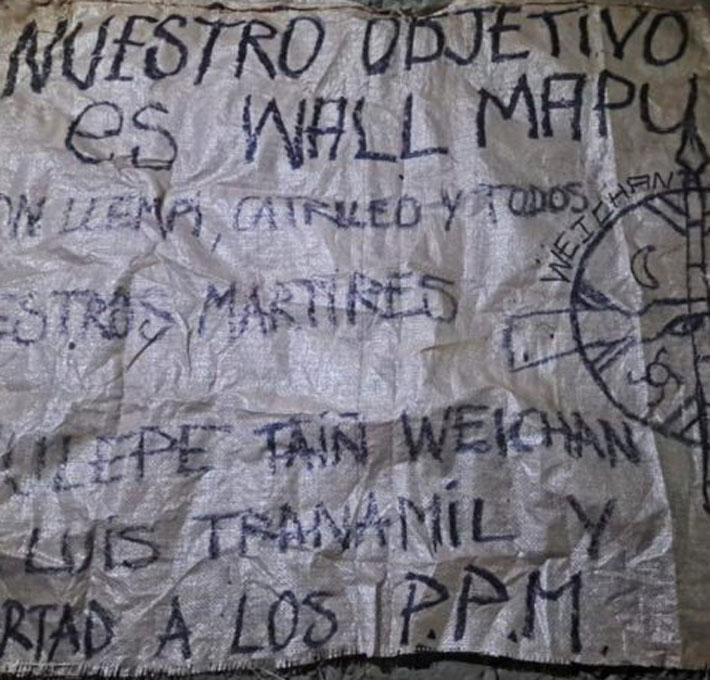 NUESTRO OBJETIVO
es WALL MAPU
ON LLEMPI, CATRILEO Y TODOS
ESTROS MARTIRES
ULEPE TAIÑ WEICHAN
LUIS TRANAMIL Y
RTAD A LOS P.P.M.
WEICHAN